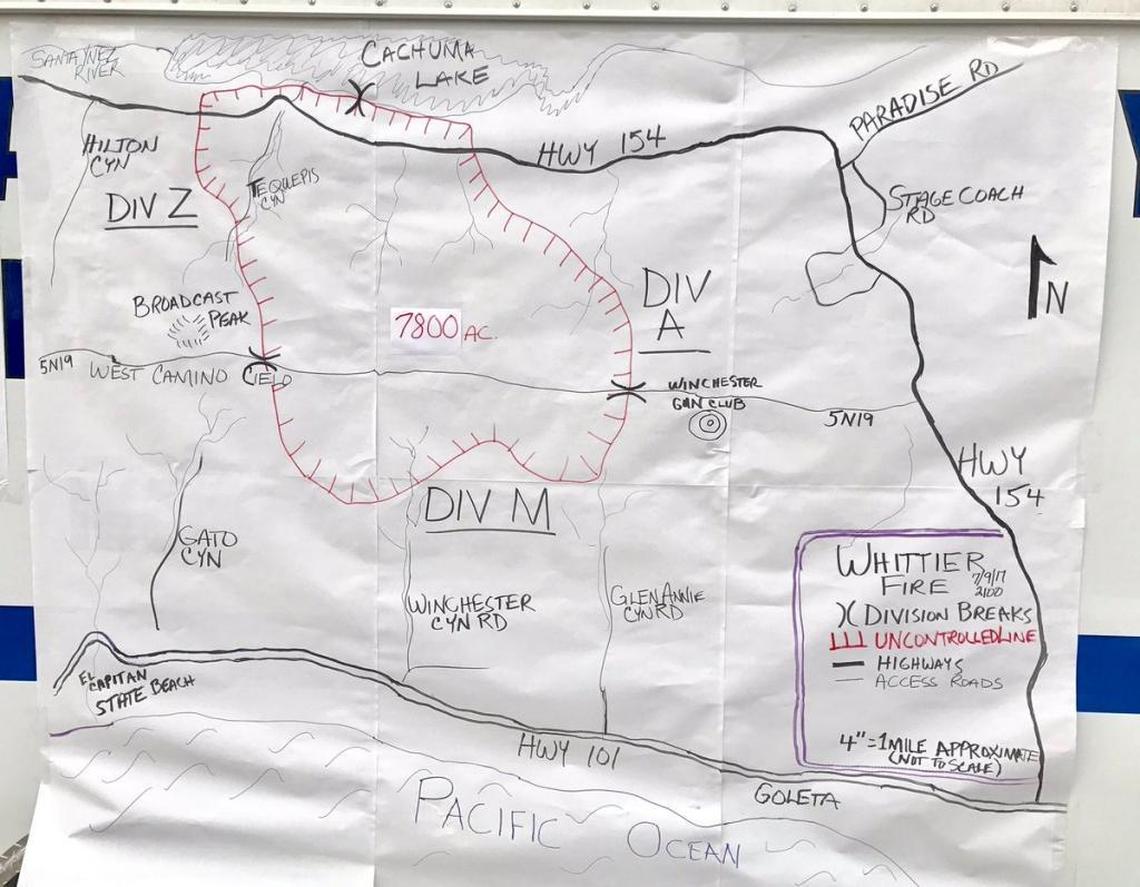 SANTA YNEZ
RIVER
CACHUMA
LAKE
PARADISE RD
HILTON
CYN
HWY 154
TEQUEPIS
CYN
STAGE COACH
RD
DIV Z
N
DIV
A
BROADCAST
PEAK
7800 AC.
5N19
WEST CAMINO
CIELO
WINCHESTER
GUN CLUB
5N19
HWY
154
DIV M
GATO
CYN
WINCHESTER
CYN RD
GLEN ANNIE
CYN RD
WHITTIER
FIRE
7/9/17
2100
)( DIVISION BREAKS
UNCONTROLLED LINE
HIGHWAYS
ACCESS ROADS
4"=1 MILE APPROXIMATE
(NOT TO SCALE)
EL
CAPITAN
STATE BEACH
HWY 101
GOLETA
PACIFIC OCEAN